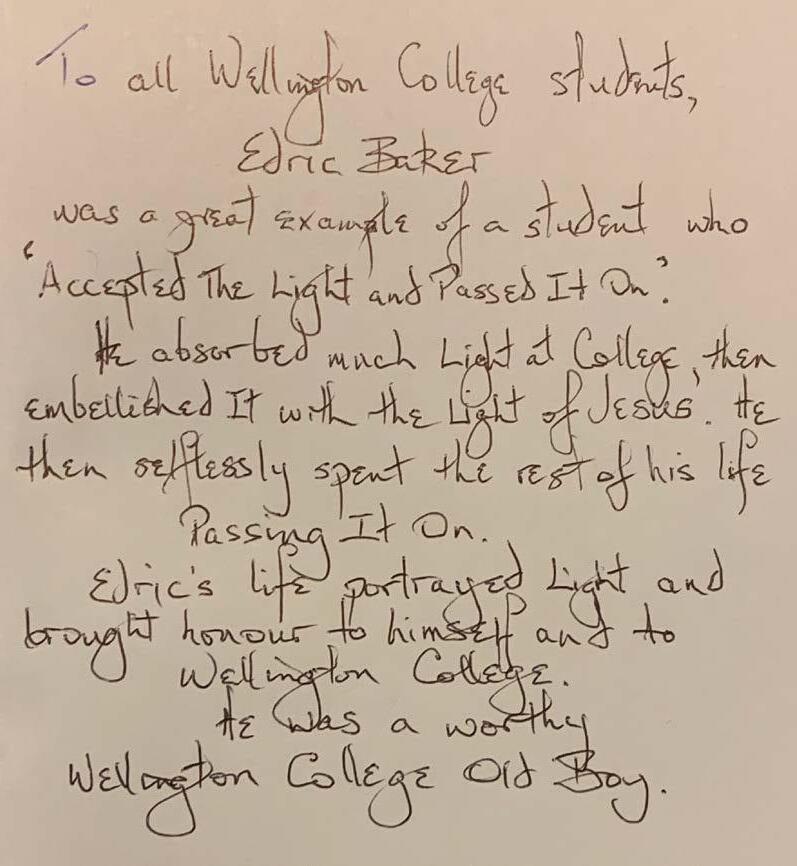 To all Wellington College students,
Edric Baker
was a great example of a student who
'Accepted The Light and Passed It On'.
He absorbed much Light at College, then
embellished It with the Light of Jesus'. He
then selflessly spent the rest of his life
Passing It On.
Edric's life portrayed Light and
brought honour to himself and to
Wellington College.
He was a worthy
Wellington College Old Boy.